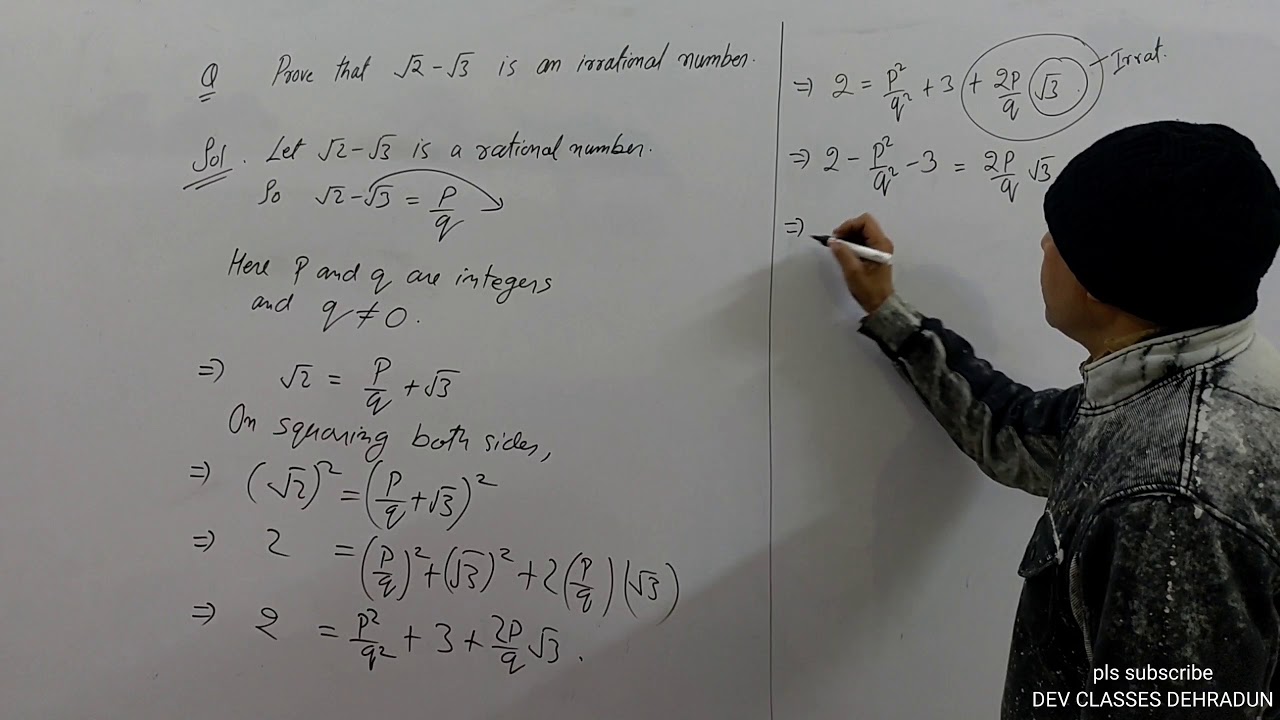 Q Prove that √2 - √3 is an irrational number.
Sol. Let √2 - √3 is a rational number.
So √2 - √3 = P/q
Here P and q are integers
and q ≠ 0.
=> √2 = P/q + √3
On squaring both sides,
=> (√2)² = (P/q + √3)²
=> 2 = (P/q)² + (√3)² + 2(P/q)(√3)
=> 2 = P²/q² + 3 + 2P/q √3.
=> 2 = P²/q² + 3 + 2P/q √3 Irrat.
=> 2 - P²/q² - 3 = 2P/q √3
=>
pls subscribe
DEV CLASSES DEHRADUN